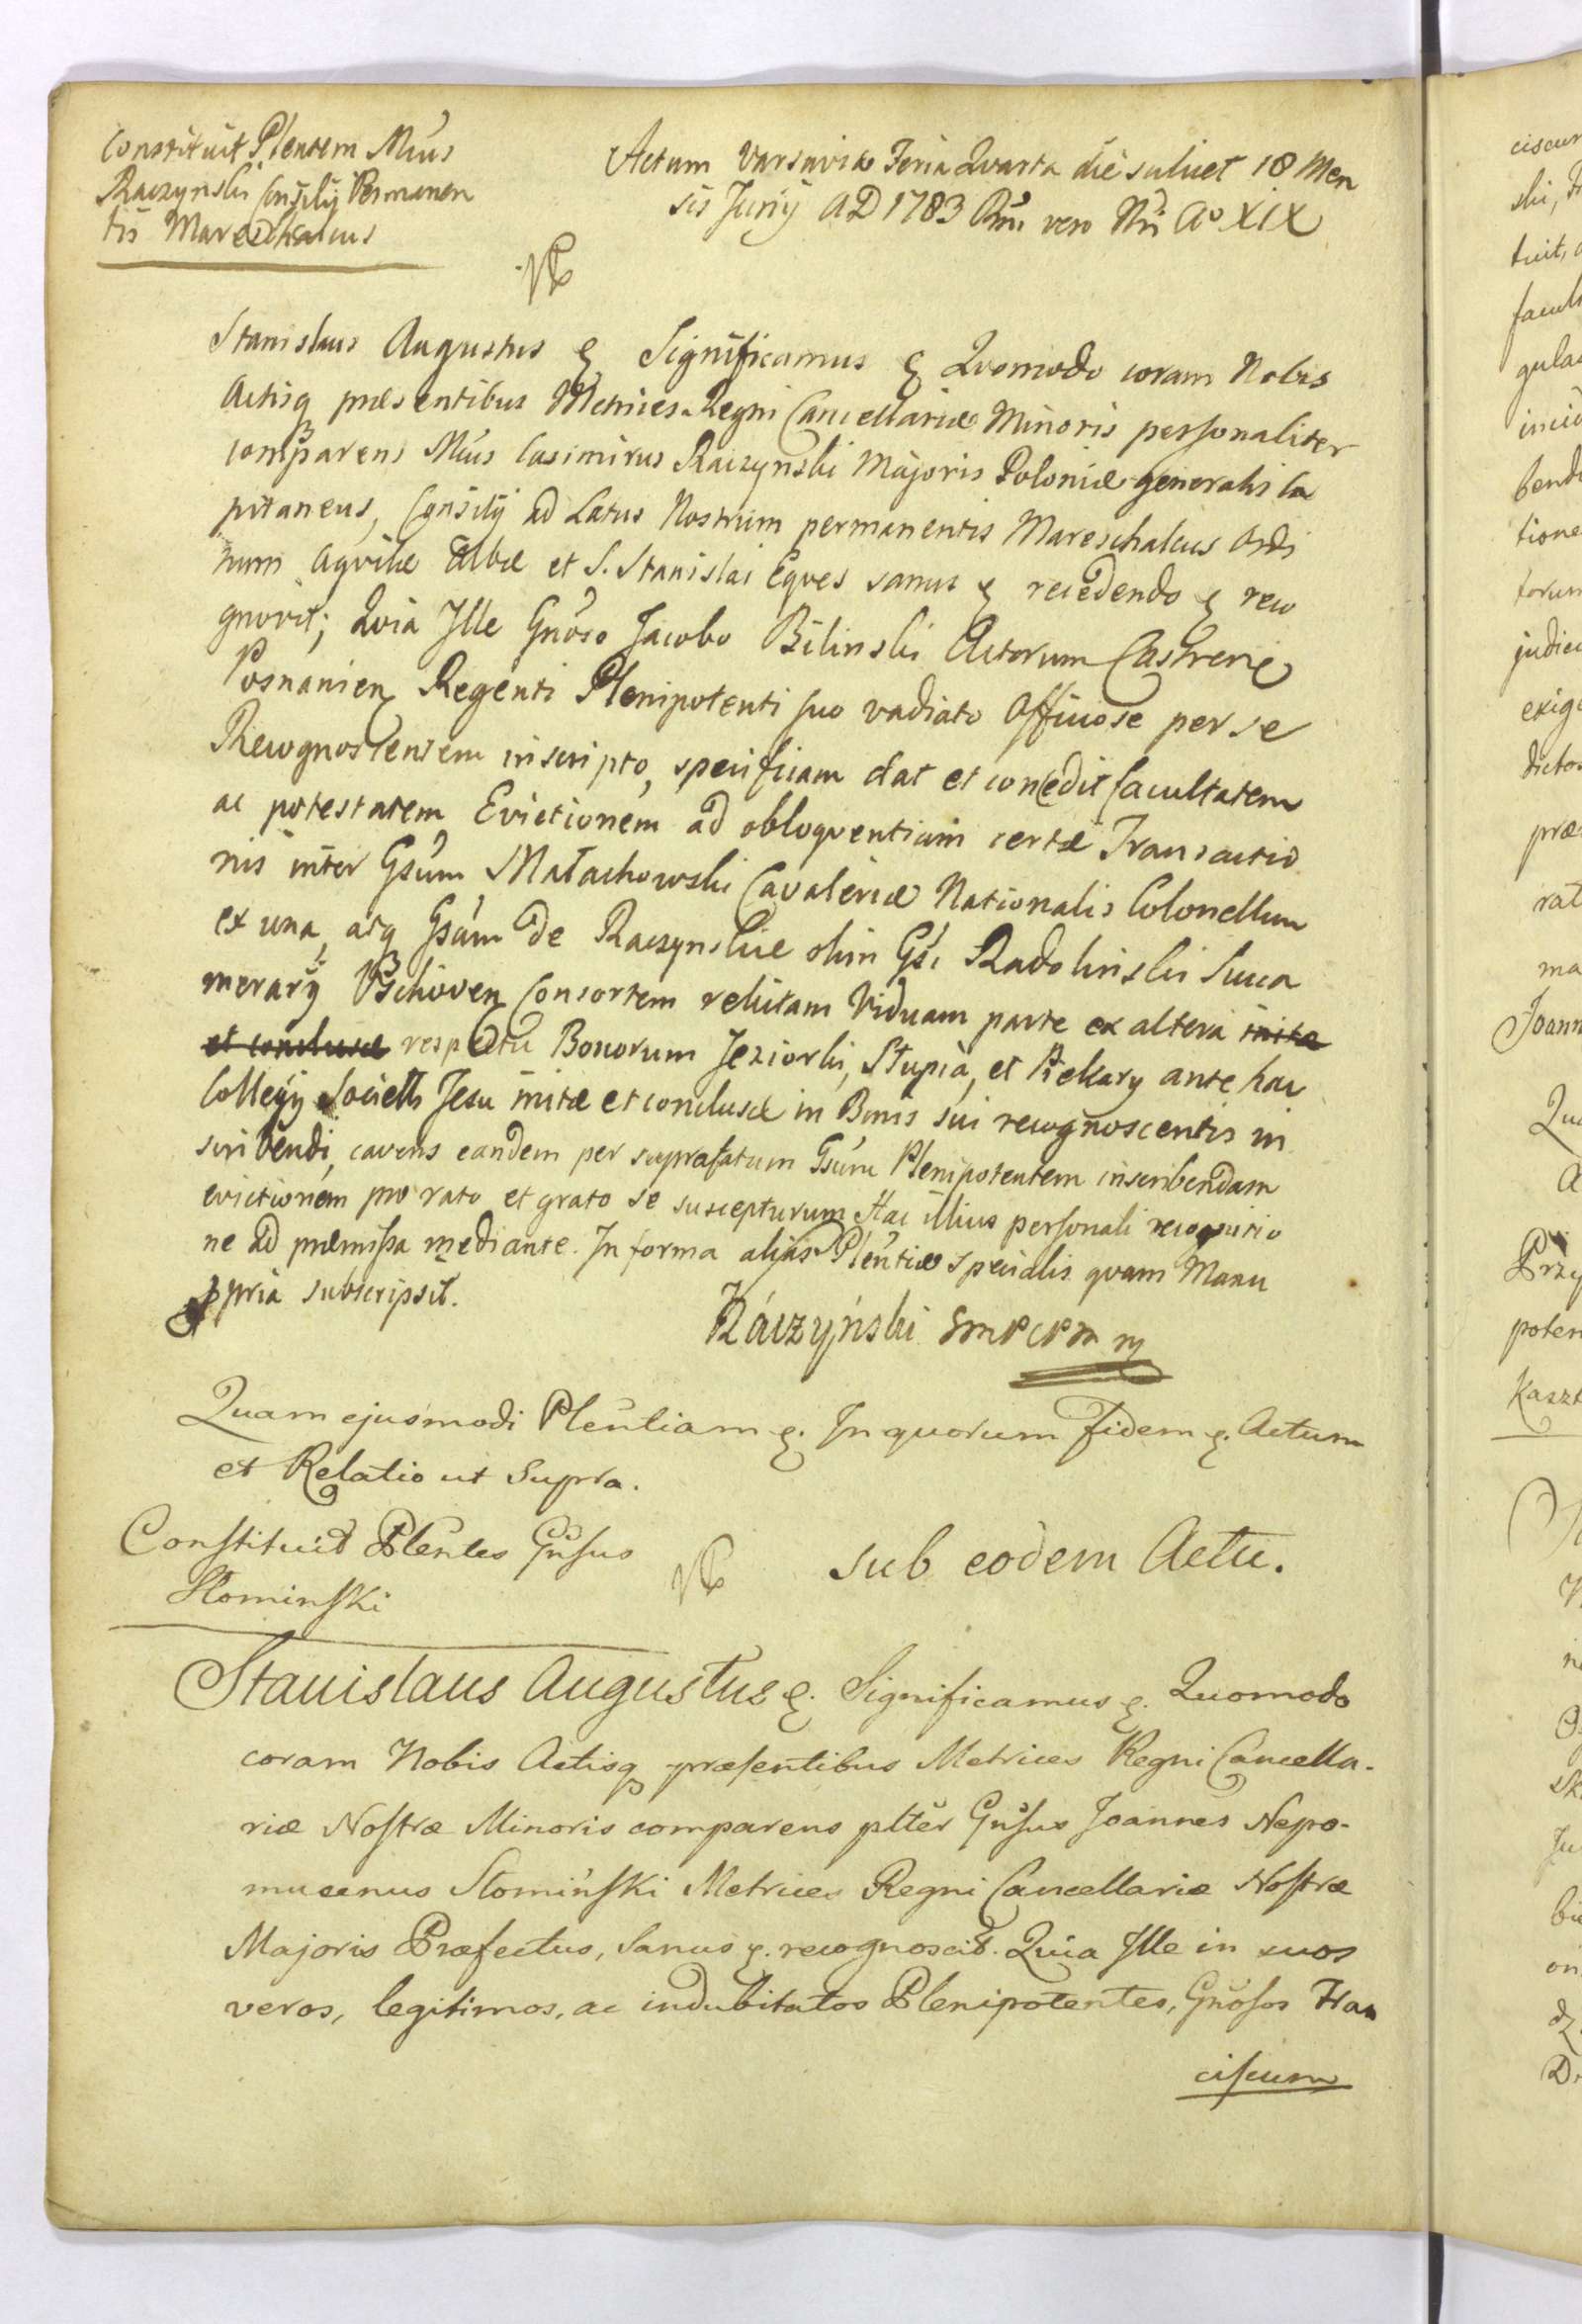 Constituit Plentem Mῦus
Raczynski Consilij Permanen
tis Mareschalcus
Actum Varsaviæ Feria Quarta die scilicet 18 Men
sis Junij AD 1783 Rñi vero Nri Aº XIX
Stanislaus Augustus & Significamus & Quomodo coram Nobis
Actisq præsentibus Metrices Regni Cancellariæ Minoris personaliter
comparens Mῦus Casimirus Raczynski Majoris Poloniæ generalis Ca
pitaneus, Consilij ad Latus Nostrum permanentis Mareschalcus Ordi
num Aqvilæ Albæ et S. Stanislai Eques sanus & recedendo & reco
gnovit; Qvia Ille Gnõso Jacobo Bilinski Actorum Castren
Posnanien Regenti Plenipotenti suo vadiato Officiose per se
Recognoscentem inscripto, specificam dat et concedit facultatem
ac potestatem Evictionem ad obloqventiam certæ Transactio
nis inter Gsum Małachowski Cavaleriæ Nationalis Colonellum
ex una, atq Gsam de Raczynskie olim Gsi Radolinski Succa
merarij Vschoven Consortem relictam Viduam parte ex altera initæ
et conclusæ respectu Bonorum Jeziorki, Słupia, et Piekary ante hac
Collegij Societts Jesu initæ et conclusæ in Bonis sui recognoscentis in
scribendi, cavens eandem per suprafatum Gsum Plenipotentem inscribendam
evictionem pro rato et grato se suscepturum Hac illius personali recognitio
ne ad præmissa mediante. In forma alias Plentiæ specialis qvam Manu
ppria subscripsit.
Ráczyński SMPCPM
Quam ejusmodi Plentiam &. In quorum fidem &. Actum
et Relatio ut Supra.
Constituit Plentes Gnsus
Słominski
sub eodem Actu.
Stanislaus Augustus &. Significamus &. Quomodo
coram Nobis Actisq præsentibus Metrices Regni Cancella-
riæ Nostræ Minoris comparens plter Gnsus Joannes Nepo-
mucenus Słomiński Metrices Regni Cancellariæ Nostræ
Majoris Præfectus, Sanus &. recognoscit. Quia Ille in suos
veros, legitimos, ac indubitatos Plenipotentes, Gnosos Fran
ciscum